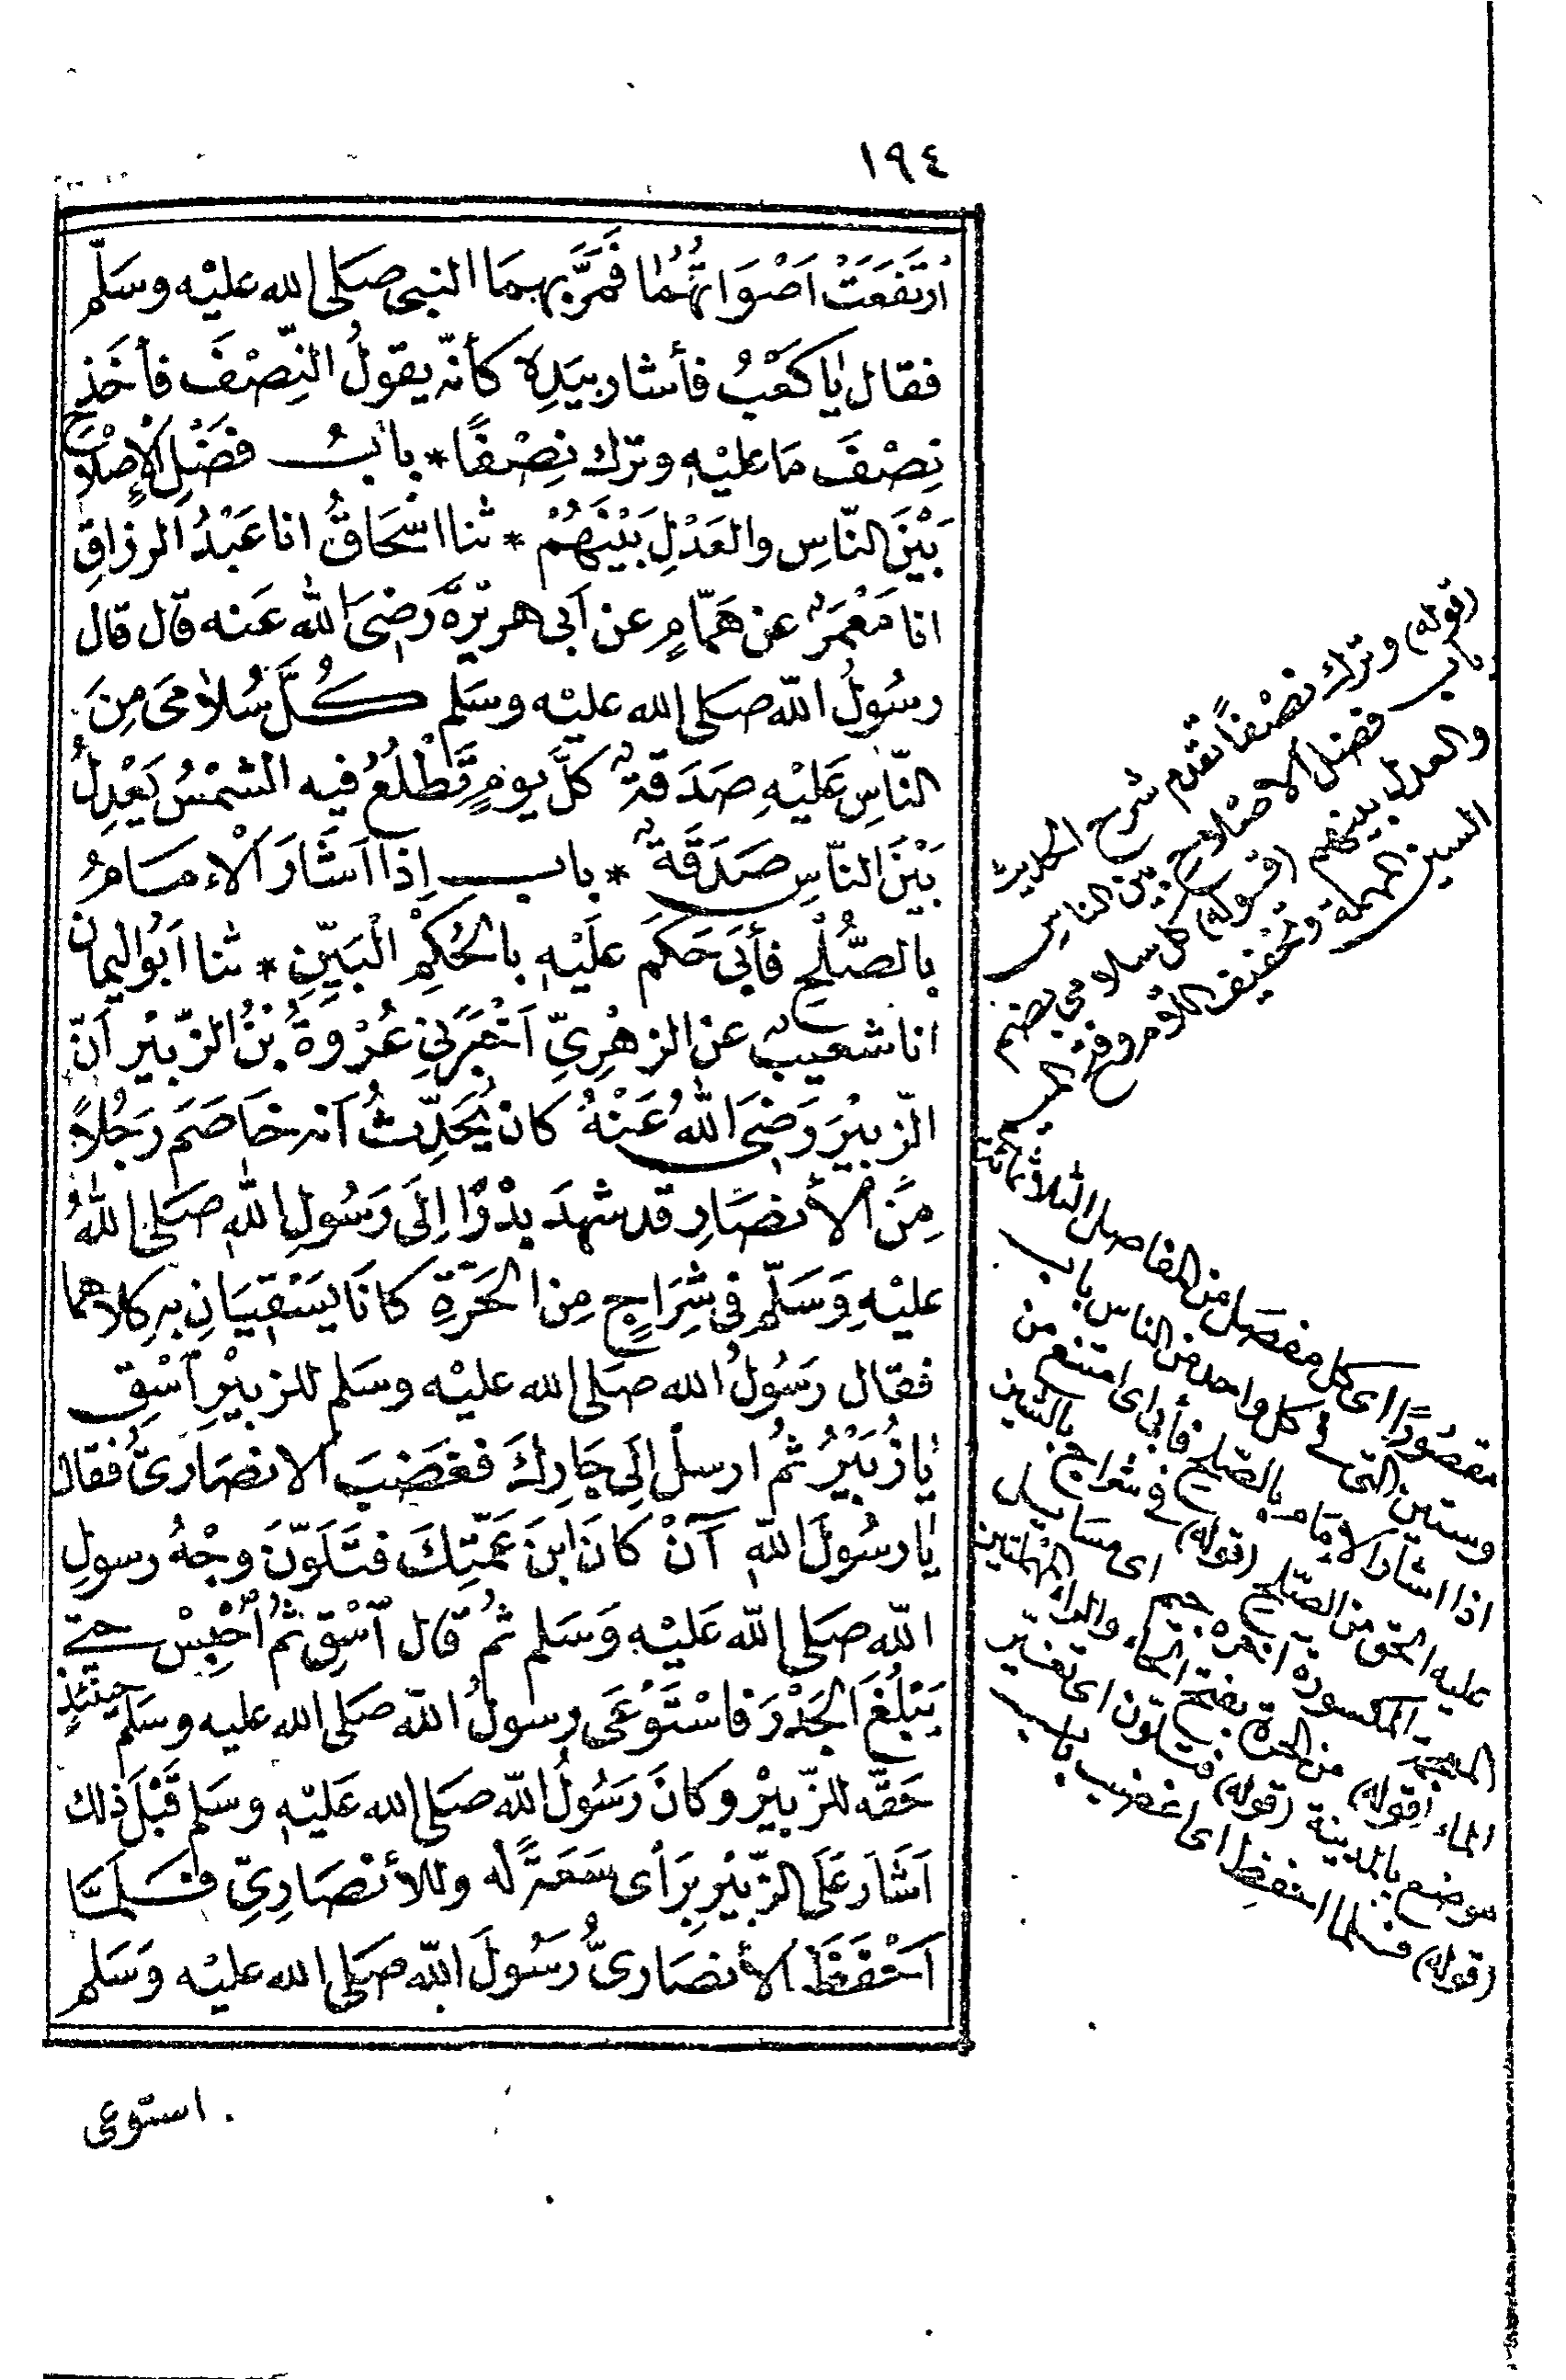 ١٩٤
ارْتَفَعَتْ اَصْوَاتُهُمَا فَمَرَّ بهمَا النبى صَلى الله عليْه وسَلّم
فقال يٰا كَعْبُ فأشار بيَدِهِ كأنّه يقولُ النِّصْفَ فأخَذ
نِصْفَ مَا عليْهِ وترك نِصْفًا * بابُ فضْلِ الإصْلاح
بَيْنَ النّاسِ والعَدْلِ بَيْنَهُمْ * ثنا اسْحَاقُ انا عَبْدُ الرزاقِ
انا مَعْمَرٌ عن هَمّامٍ عن اَبى هريْرةَ رَضىَ الله عَنه قال قال
رسُولُ اللّه صَلى الله عليْه وسَلم كُلُّ سُلاٰمىَ مِنَ
النّاسِ عَليْهِ صَدَقةٌ كلَّ يومٍ تَطْلُعُ فيه الشمْسُ يَعْدِلُ
بَيْنَ النّاسِ صَدَقَةٌ * باب اِذا اَشَارَ اْلاِمَامُ
بالصُّلْحِ فأبَى حَكَمَ عَليْهِ بالحُكِمْ الْبَيِّنِ * ثنا اَبُو اليمان
انا شعيبٌ عن الزهْرِىِّ اَخْبَرَنِى عُرْوَةُ بْنُ الزّبيْر اَنّ
الزّبيْرَ رَضىَ اللهُ عَنْهُ كان يُحَدِّثُ اَنه خاصَمَ رَجُلاً
مِنَ اْلأنصَارِ قد شهدَ بدْرًا اِلَى رَسُولِ اللهِ صَلى اللهُ
عليْهِ وَسَلّم فى شِرَاجٍ مِن الحَرّةِ كانَا يَسْقِيَانِ به كلاهما
فقال رَسُولُ الله صَلى الله عليْه وسَلم للزبيْرِ اَسْقِ
يٰا زُبَيْرُ ثمُ ارسلْ اِلَى جَارِكَ فغَضبَ الانصَارىُّ فقال
يٰا رسُولَ اللّهِ آنْ كانَ ابنَ عَمّتِكَ فتَلَوّنَ وجْهُ رسولِ
اللّه صَلى اللّه عَليْه وَسَلم ثمُ قال اَسْقِ ثمُ اَحْبِسْ حتى
يَبْلُغَ الجَدْرَ فاسْتَوْعَى رسولُ اللّه صَلى الله عليه وسَلم حينَئذٍ
حَقّه للزّبيْر وكانَ رَسُولُ اللّه صَلى الله عَليْهِ وسَلم قَبْلَ ذلك
اَشَارَ عَلَى الزّبيْرِ برَأى سَعَةً له وللأنْصَارِىِّ فلمَّا
اَحْفَظَ الأنصَارىُّ رَسُولَ اللّه صَلى الله عليْه وَسَلم
استوعى
(قوله) وترك نصْفاً تقدم شرح الحديث
باب فضل الاصْلاح بين الناس
والعدل بينهم (قوله) كل سلامى بضم
السين المهملة وتخفيف اللام وفتح الميم
مقصُورًا اى كل مفصَل من المفاصل الثلاثمائة
وستين التى فى كل واحد من الناس باب
اذا اشار الامام بالصّلح فأبى اى امتنع من
عليه الحق من الصّلح (قوله) فى شراج بالشين
المعجمة المكسورة اخره جيم اى مسايل
الماء (قوله) من الحرّة بفتح الحاء والراء المهملتين
موضع بالمدينة (قوله) فتلوّن اى تغيّر
(قوله) فلما احفظ اى اغضب باب